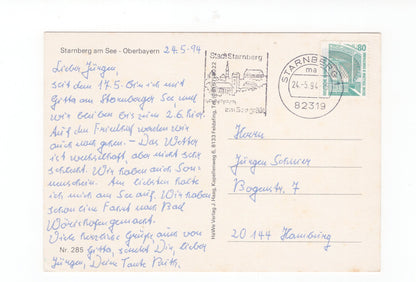 Starnberg am See - Oberbayern 24.5.94
Lieber Jürgen,
seit dem 17.5. bin ich mit
Gitta am Starnberger See, und
wir bleiben bis zum 2.6. hier.
Auf den Friedhof werden wir
auch noch gehen. - Das Wetter
ist wechselhaft, aber nicht sehr
schlecht. Wir haben auch Son-
nenschein. Am liebsten halte
ich mich am See auf. Wir haben
schon eine Fahrt nach Bad
Wörishofen gemacht.
Viele herzliche Grüße, auch von
Gitta, sendet Dir, lieber
Jürgen, Deine Tante Ruth.
Nr. 285
HaWe Verlag J. Haag, Kapellenweg 6, 8133 Feldafing, Tel.
Stadt Starnberg
am See
STARNBERG
ma
24.-5.94
82319
80
Herrn
Jürgen
Bogenstr. 7
20144 Hamburg